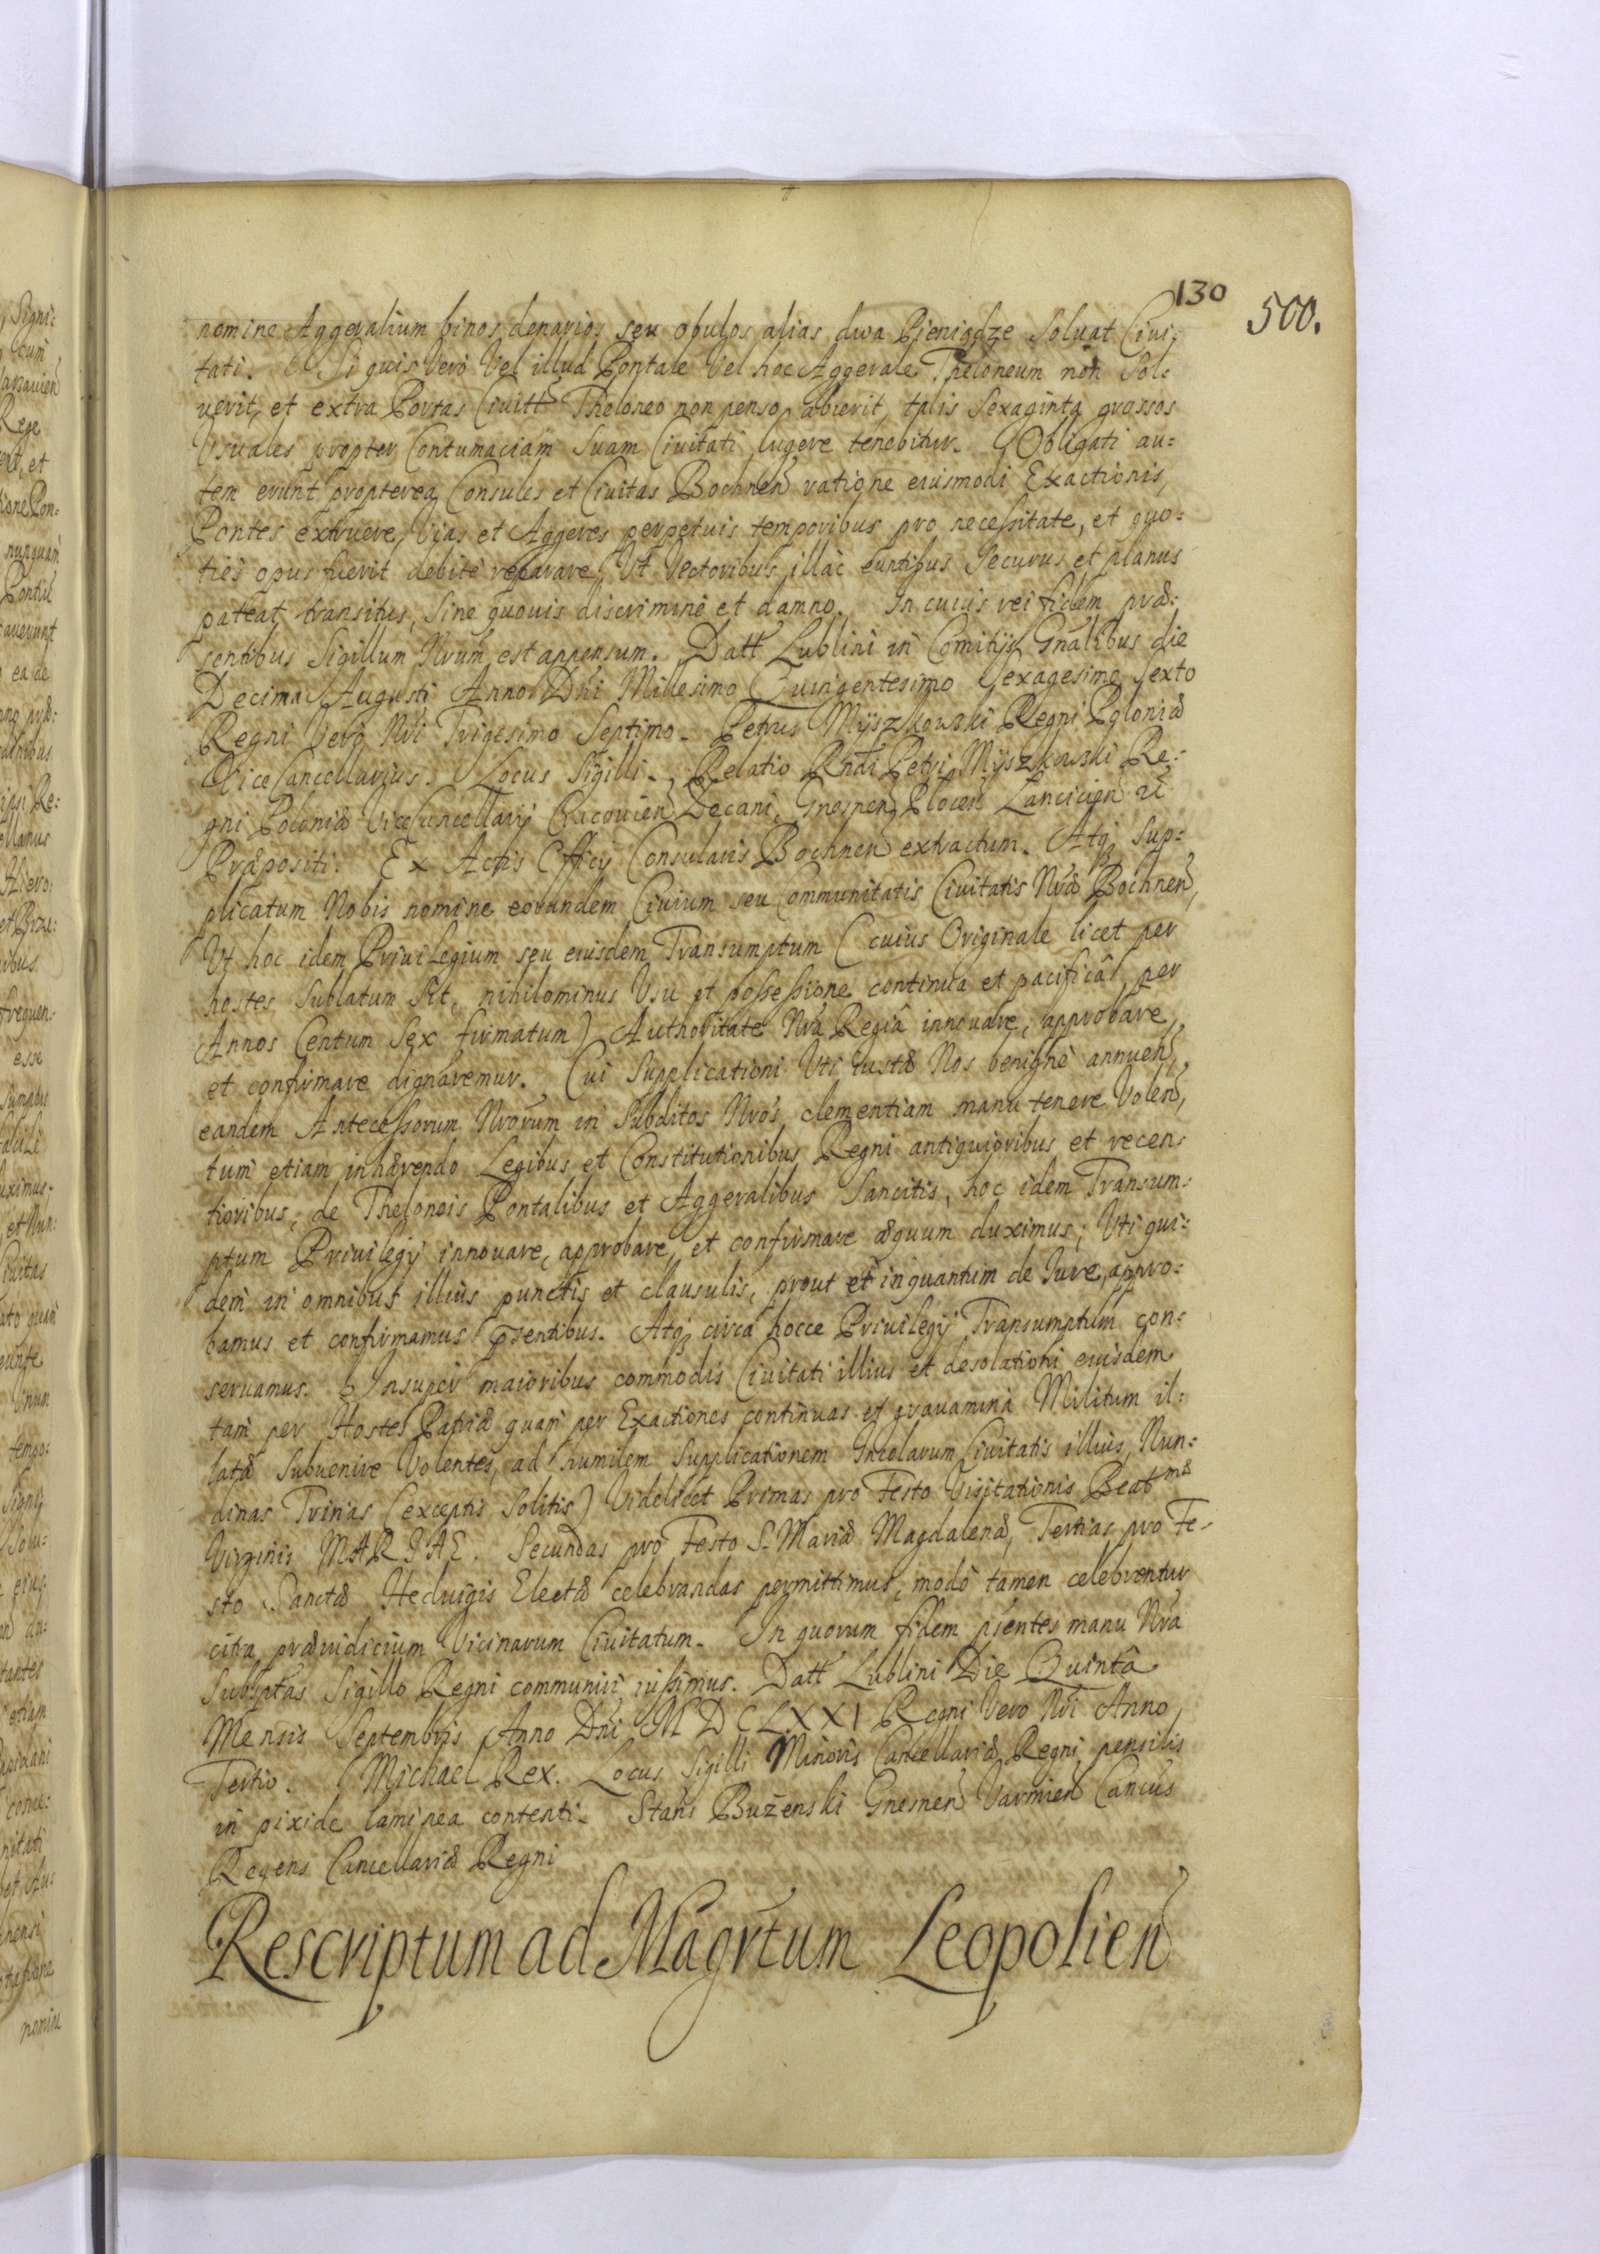 130
500.
nomine Aggeralium binos denarios seu obulos alias dwa Pieniądze Soluat Ciui-
tati. Si quis Vero Vel illud Pontale Vel hoc Aggerale Theloneum non Sol-
uerit, et extra Portas Ciuitt Theloneo non penso abierit, talis Sexaginta grossos
Usuales propter Contumaciam Suam Ciuitati lugere tenebitur. Obligati au=
tem erunt propterea Consules et Ciuitas Bochnen ratione eiusmodi Exactionis,
Pontes extruere, Vias et Aggeres perpetuis temporibus pro necessitate, et quo-
ties opus fuerit debite reparare, Ut Vectoribus illàc euntibus Securus et planus
pateat transitus, Sine quouis discrimine et damno. In cuius rei fidem præ-
sentibus Sigillum Nrum est appensum. Datt Lublini in Comitijs Gnalibus die
Decima Augusti Anno Dni Millesimo Quingentesimo Sexagesimo Sexto
Regni Vero Nri Trigesimo Septimo. Petrus Myszkowski Regni Poloniæ
Vice Cancellarius. Locus Sigilli. Relatio Rndi Petri Myszkowski Re-
gni Poloniæ Vicecancellarij Cracouien Decani, Gnesnen, Plocen Lancicien etc
Præpositi. Ex Actis Officij Consularis Bochnen extractum. Atq Sup-
plicatum Nobis nomine eorundem Ciuium seu Communitatis Ciuitatis Nræ Bochnen,
Ut hoc idem Priuilegium seu eiusdem Transumptum (cuius Originale licet per
hostes Sublatum Sit, nihilominus Usu et possessione continua et pacificâ per
Annos Centum Sex firmatum) Authoritate Nra Regiâ innouare, approbare,
et confirmare dignaremur. Cui Supplicationi Uti iustæ Nos benignè annuen,
eandem Antecessorum Nrorum in Subditos Nros, clementiam manu tenere Volen,
tum etiam inhærendo Legibus et Constitutionibus Regni antiquioribus et recen-
tioribus, de Theloneis Pontalibus et Aggeralibus Sancitis, hoc idem Transum-
ptum Priuilegij innouare, approbare, et confirmare æquum duximus; Uti qui-
dem in omnibus illius punctis et clausulis, prout et inquantum de Jure, appro-
bamus et confirmamus psentibus. Atq circa hocce Priuilegij Transumptum con-
seruamus. Insuper maioribus commodis Ciuitati illius et desolationi eiusdem
tam per Hostes Patriæ quam per Exactiones continuas et grauamina Militum il-
latæ Subuenire Volentes, ad humilem Supplicationem Incolarum Ciuitatis illius, Nun-
dinas Trinas (exceptis Solitis) Videlicet Primas pro Festo Visitationis Beatmæ
Virginis MARIAE. Secundas pro Festo S. Mariæ Magdalenæ, Tertias pro Fe-
sto Sanctæ Heduigis Electæ celebrandas permittimus, modò tamen celebrentur
citra præiudicium Vicinarum Ciuitatum. In quorum fidem pientes manu Nra
Subsptas Sigillo Regni communiri iussimus. Datt Lublini Die Quintâ
Mensis Septembris Anno Dni MDCLXXI Regni Vero Nri Anno
Tertio. Michael Rex. Locus Sigilli Minoris Cancellariæ Regni pensilis
in pixide laminea contenti. Stans Bużenski Gnesnen Varmien Cancus
Regens Cancellariæ Regni
Rescriptum ad Magrtum Leopolien